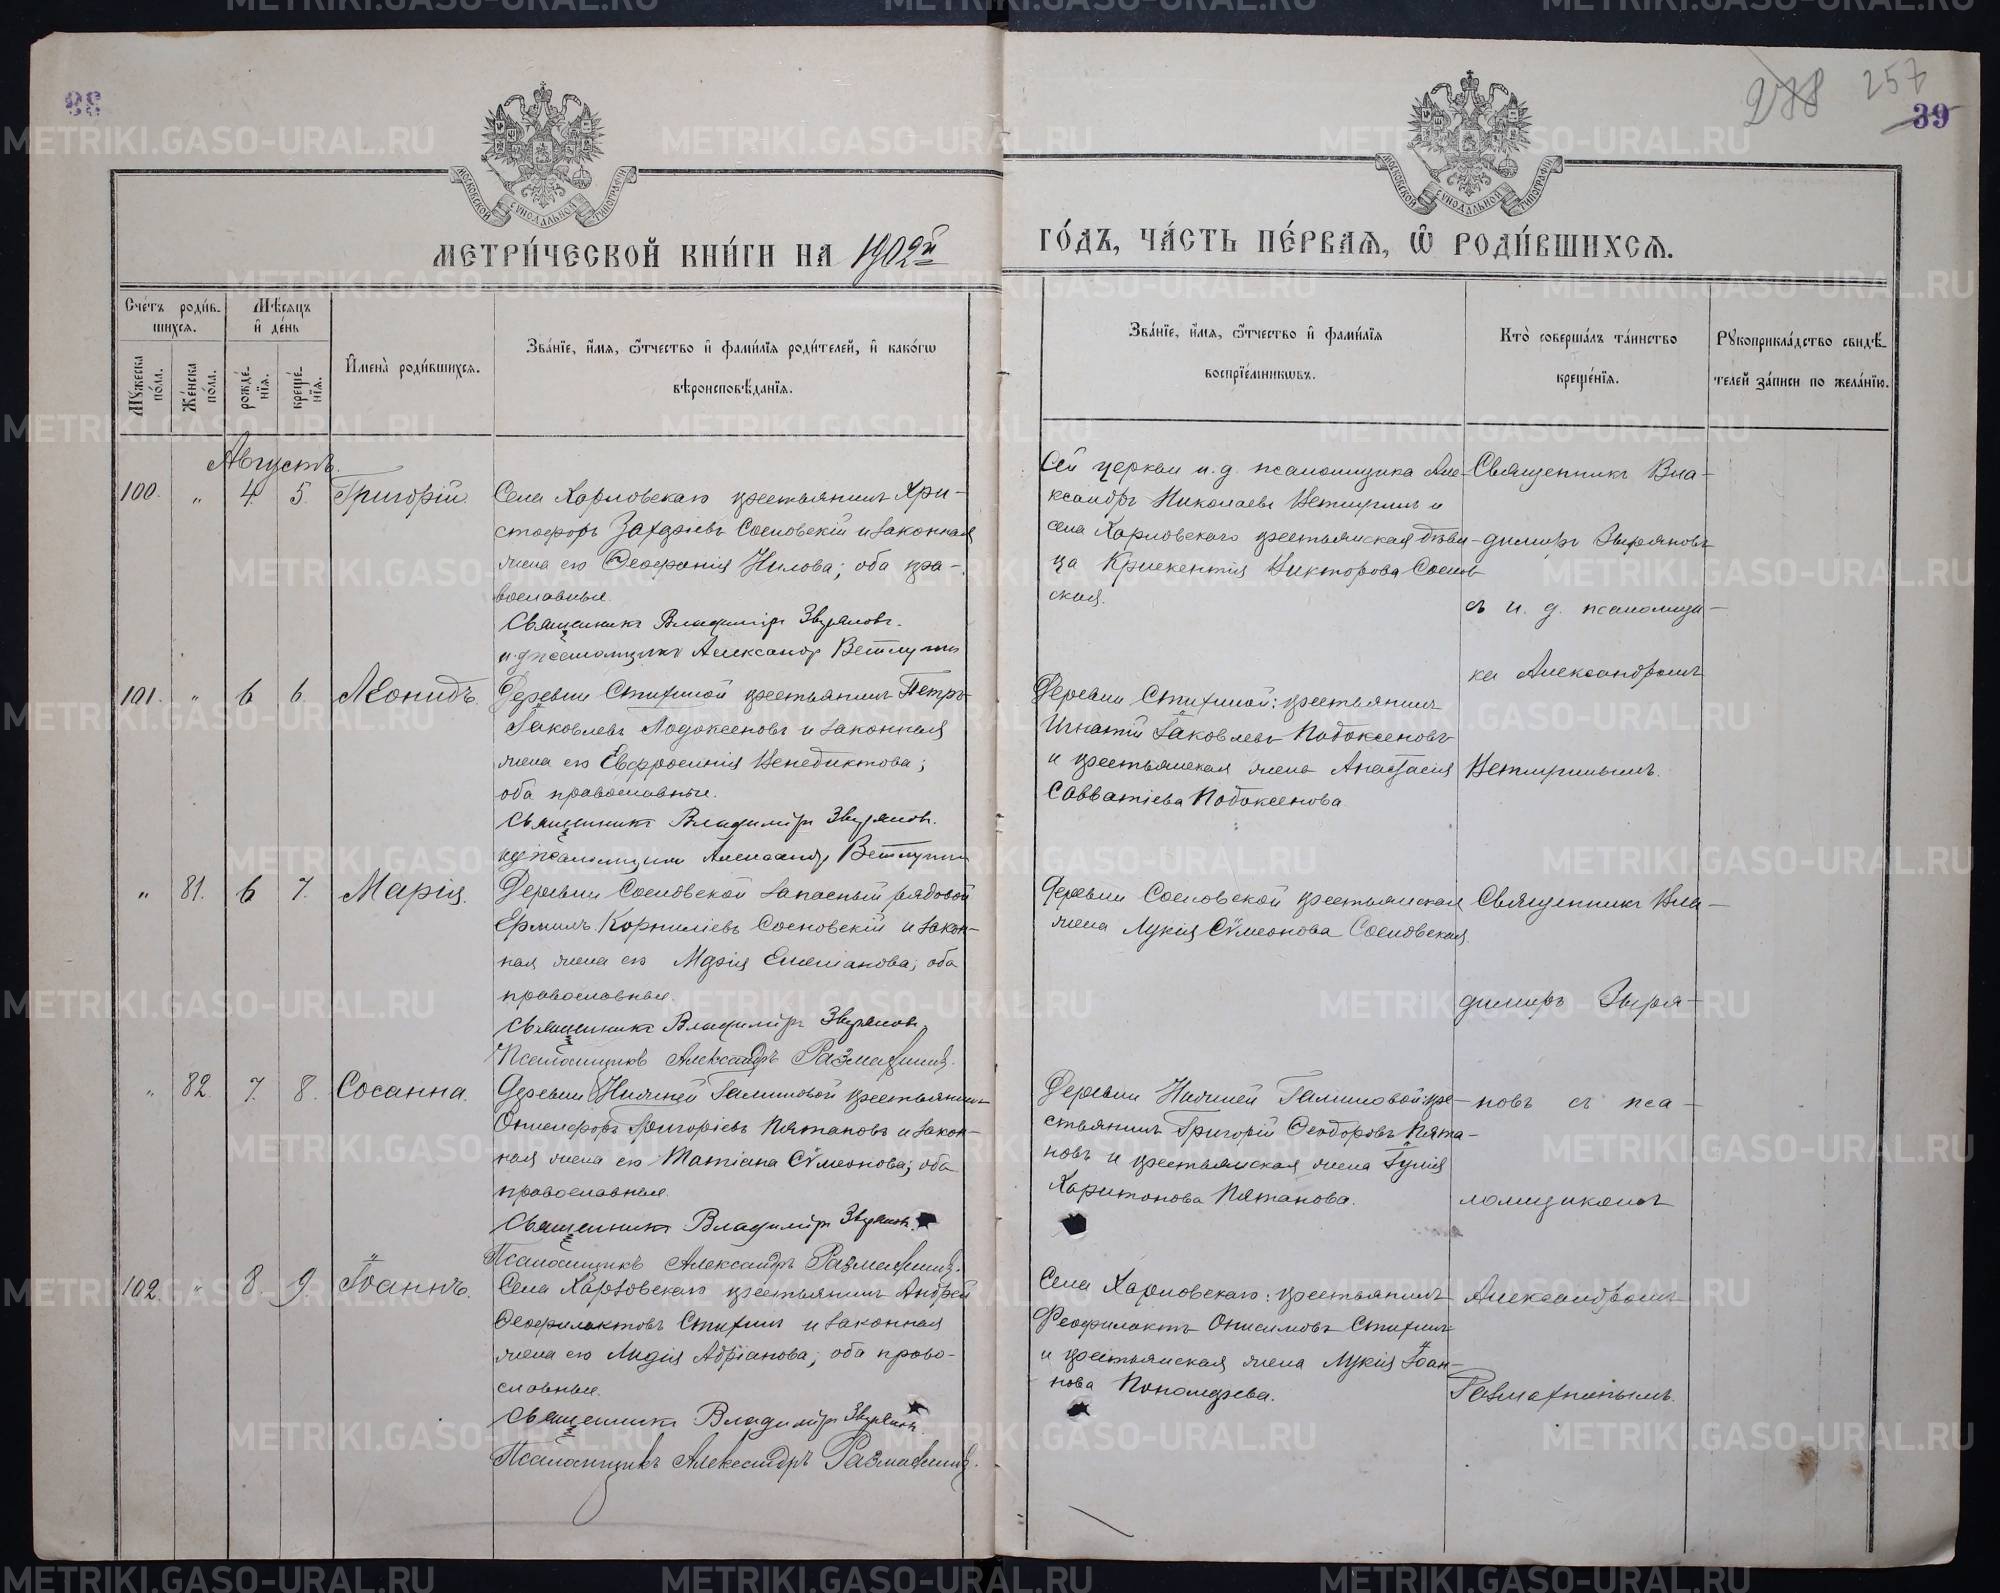 38
257
39
МОСКОВСКОЙ СѴНОДАЛЬНОЙ ТИПОГРАФІИ
МОСКОВСКОЙ СѴНОДАЛЬНОЙ ТИПОГРАФІИ
МЕТРИ́ЧЕСКОЙ КНИ́ГИ НА 1902й
ГО́ДЪ, ЧА́СТЬ ПЕ́РВАѦ, Ѿ РОДИ́ВШИХСѦ.
Сче́тъ роди́в-
шихсѧ.
Мѣ́сѧцъ
и҆ де́нь
Мꙋ́жеска по́ла.
Же́нска по́ла.
рожде́-
нїѧ.
креще́-
нїѧ.
И҆мена̀ роди́вшихсѧ.
Зва́нїе, и҆́мѧ, ѻ҆́тчество и҆ фами́лїѧ роди́телей, и҆ како́гѡ
вѣроисповѣ́данїѧ.
Зва́нїе, и҆́мѧ, ѻ҆́тчество и҆ фами́лїѧ
воспрїе́мниковъ.
Кто̀ соверша́лъ та́инство
креще́нїѧ.
Рꙋкоприкла́дство свидѣ́-
телей за́писи по жела́нїю.
Августъ.
100. „ 4. 5. Григорій.
Села Харловскаго крестьянинъ Хри-
стофоръ Захаріевъ Сосновскій и законная
жена его Ѳеофанія Нилова; оба пра-
вославные.
Священникъ Владиміръ Звѣревъ.
и.д. псаломщика Александръ
Сей церкви и.д. псаломщика Але-
ксандръ Николаевъ и
села Харловскаго крестьянская дѣви-
ца Крискентія Викторова Соснов-
ская.
Священникъ Вла-
димиръ
съ и. д. псаломщи-
ка Александромъ
101. „ 6 6. Леонидъ.
Деревни Стихиной крестьянинъ Петръ
Іаковлевъ Подоксеновъ и законная
жена его Евфросинія Венедиктова;
оба православные.
Священникъ Владиміръ
и.д. псаломщика Александръ
Деревни Стихиной: крестьянинъ
Игнатій Іаковлевъ Подоксеновъ
и крестьянская жена Анастасія
Савватіева Подоксенова.
„ 81. 6 7. Марія.
Деревни Сосновской запасный рядовой
Ермилъ Корниліевъ Сосновскій и закон-
ная жена его Марія Емеліанова; оба
православные.
Священникъ Владиміръ
Псаломщикъ Александръ Размахнинъ.
Деревни Сосновской крестьянская
жена Лукія Сѵмеонова Сосновская.
Священникъ Вла-
димиръ
„ 82. 7. 8. Сосанна.
Деревни Нижней Галишовой крестьянинъ
Онисифоръ Григоріевъ Пятановъ и закон-
ная жена его Татіана Сѵмеонова; оба
православные.
Священникъ Владиміръ
Псаломщикъ Александръ Размахнинъ.
Деревни Нижней Галишовой: кре-
стьянинъ Григорій Ѳеодоровъ Пята-
новъ и крестьянская жена Іулія
Харитонова Пятанова.
новъ съ пса-
ломщикомъ
102. „ 8. 9. Іоаннъ.
Села Харловскаго крестьянинъ Андрей
Ѳеофилактовъ Стихинъ и законная
жена его Лидія Адріанова; оба право-
славные.
Священникъ Владиміръ
Псаломщикъ Александръ Размахнинъ.
Села Харловскаго: крестьянинъ
Ѳеофилактъ Онисимовъ Стихинъ
и крестьянская жена Лукія Іоан-
нова Пономарева.
Александромъ
Размахнинымъ.
METRIKI.GASO-URAL.RU